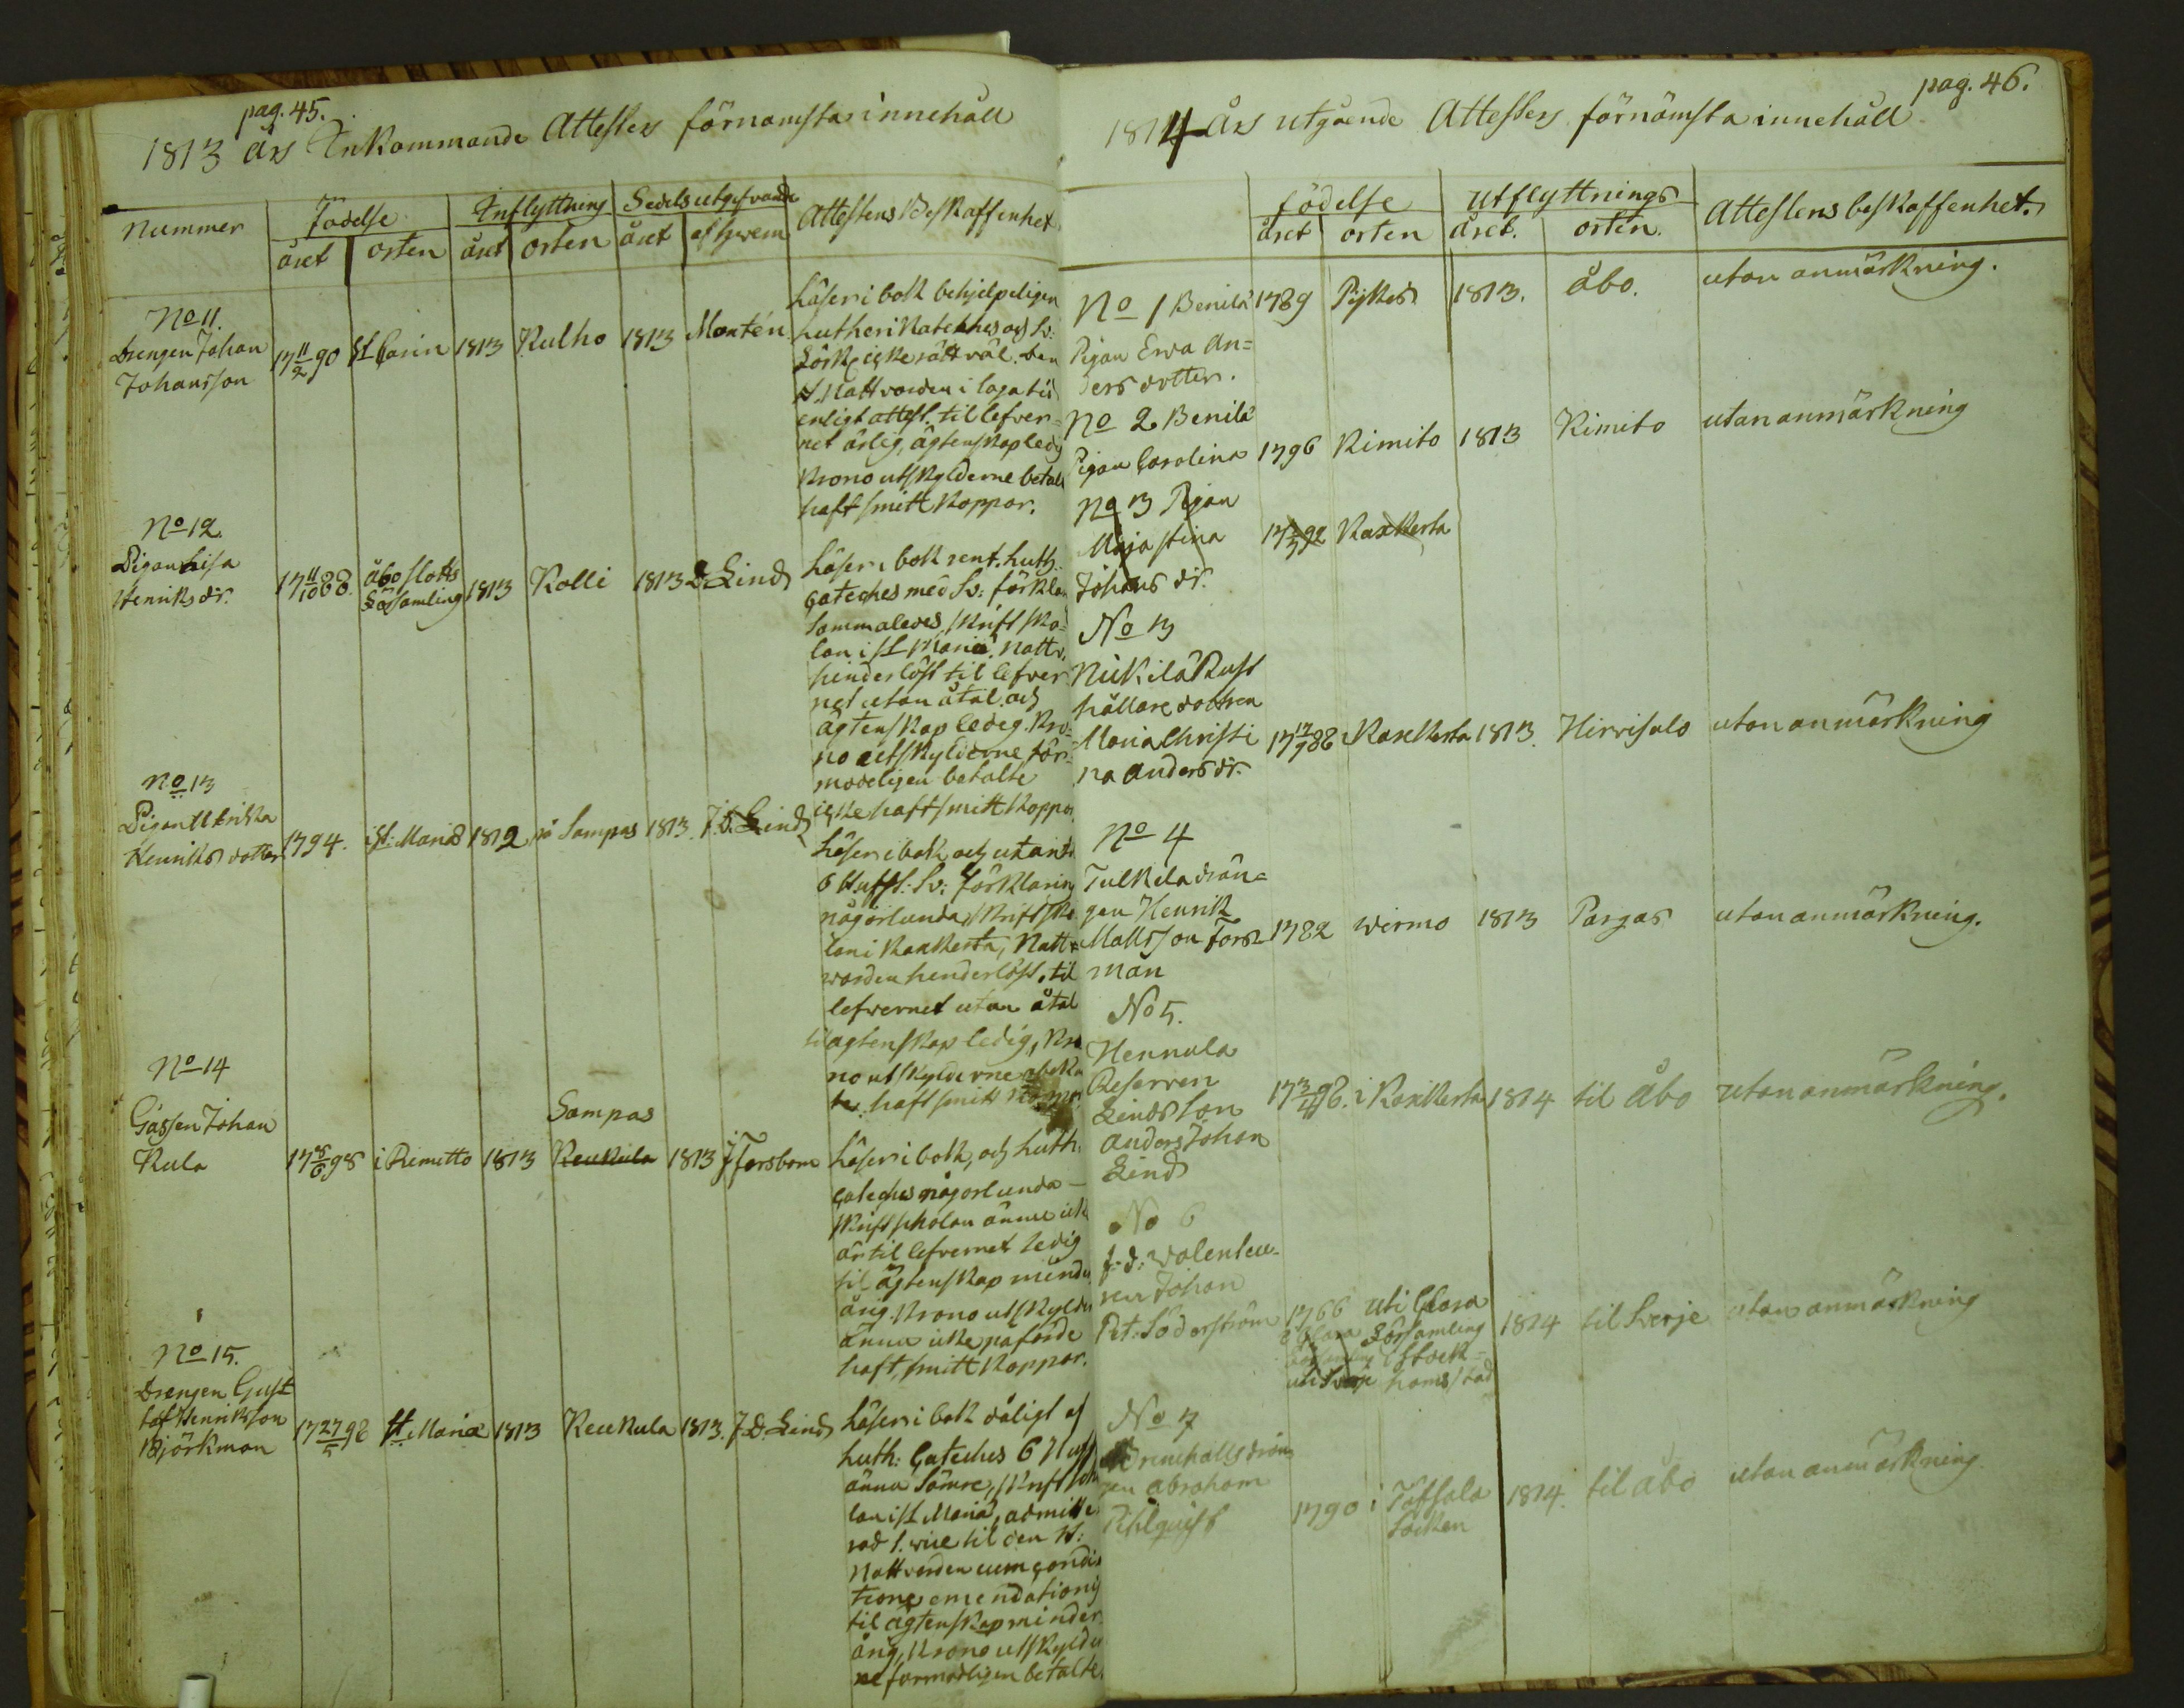 pag. 45.
1813 års Inkommande Attesters förnamsta innehåll
Nummer
Födelse
Inflyttning
Sedels utgifvande
Attestens Beskaffenhet
året
orten
året
orten
året
af hwem
No 11.
Drengen Johan
Johansson
17 11/2 90
St Carin
1813
Kulho
1813
Montén
Läser i bok behjelpeligen
Lutheri Kateches och Sv:
Förk: icke rätt väl. den
H. Nattvarden i laga tid
enligt attest. til lefver=
net ärlig, ägtenskap ledig
Krono utskylderne betalt
haft smittkoppor.
No 12.
Pigan Lisa
Henriks dr.
17 11/10 88.
åbo slotts
Församling
1813
Kolli
1813
Lind
Läser i bok rent. Luth.
Cateches med Sv: förkla
sammaledes, skriftsko=
lan i St Mariæ. Nattv.
hinderlöst til lefver
net utan åtal och
ägtenskap ledig. Kro=
no utskylderne för=
modeligen betalte
icke haft smittkoppor
No 13
Pigan Ulrika
Henriks dotter
1794.
i St: Mariæ
1812
på Sampas
1813.
J. D. Lind
Läser i bok och utantil
6 Huffst: Sv: förklaring
någorlunda, skriftsko
lan i Kaxkerta, Natt=
warden henderlöst. til
lefvernet utan åtal
til agtenskap ledig, Kro
no utskylderne
te. haft smittkoppor
No 14
Gåssen Johan
Kula
17 8/6 98
i Rimitto
1813
Sampas
Keukula
1813
J Forsbom
Läser i bok, och Luth.
Cateches någorlunda -
skriftskolan ännu icke
är til lefvernet ledig
til ägtenskap minder
årig. Krono utskylder
ännu icke påförde
haft smittkoppor.
No 15.
Drengen Gust
taf Henriksson
Björkman
17 27/5 98
St. Mariæ
1813
Keukula
1813.
J. D. Lind
Läser i bok dåligt af
Luth: Cateches 6 Huff
ännu sämre, skriftsko
lan i St Mariæ, admitte
rad 1. wice til den H:
Nattvarden cum condi=
tione emendationis
til ägtenskap minder
årig, Krono utskylder
ne formodligen betalte.
pag. 46.
1814 års utgående Attesters förnämsta innehåll
födelse
utflyttnings
Attestens beskaffenhet.
året
orten
året.
orten.
No 1 Benilä
Pigan Ewa An=
ders dotter.
1789
Pijkes
1813.
åbo.
utan anmärkning.
No 2 Benilä
Pigan Carolina
1796
Kimito
1813
Kimito
utan anmärkning
No 3 Pigan
Maja Stina
Johans dr.
Kaxkerta
No 3
Nickilä Rust
hållare dottren
Maria Christi
na Anders dr.
17 17/7 88
Kaxkerta
1813.
Hirvisalo
utan anmärkning
No 4
Tulkila drän=
gen Henrik
Mattsson Fors
man
1782
Wirmo
1813
Pargas
utan anmärkning.
No 5.
Hennala
Reserven
Linds son
Anders Johan
Lind
17 3/4 98.
i Kaxkerta
1814
til Åbo
utan anmärkning.
No 6
f: d: Volenteu=
ren Johan
Pet. Söderström
1766
uti Clara
Församling
i Stock=
homs stad
uti Sverje
1814
til Sverje
utan anmärkning
No 7
gen Abraham
Pihlquist
1790
i Töfsala
Socken
1814.
til Åbo
utan anmärkning.